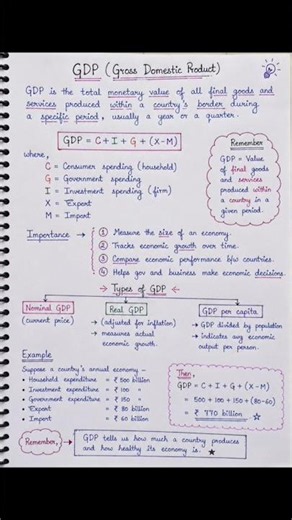 GDP (Gross Domestic Product)
GDP is the total monetary value of all final goods and
services produced within a country's border during
a specific period, usually a year or a quarter.
GDP = C + I + G + (X-M)
where,
C = Consumer spending (household)
G = Government spending
I = Investment spending (firm)
X = Export
M = Import
Remember
GDP = Value
of final goods
and services
produced within
a country in a
given period.
Importance →
① Measure the size of an economy.
② Tracks economic growth over time.
③ Compare economic performance b/w countries.
④ Helps gov and business make economic decisions.
→ Types of GDP ←
Nominal GDP
(current price)
Real GDP
→ (adjusted for inflation)
→ measures actual
economic growth.
GDP per capita
→ GDP divided by population
→ indicates avg economic
output per person.
Example
Suppose a country's annual economy –
• Household expenditure = ₹ 500 billion
• Investment expenditure = ₹ 100 "
• Government expenditure = ₹ 150 "
• Export = ₹ 80 billion
• Import = ₹ 60 billion
Then,
GDP = C + I + G + (X-M)
= 500 + 100 + 150 + (80-60)
= ₹ 770 billion
Remember,
GDP tells us how much a country produces
and how healthy its economy is.